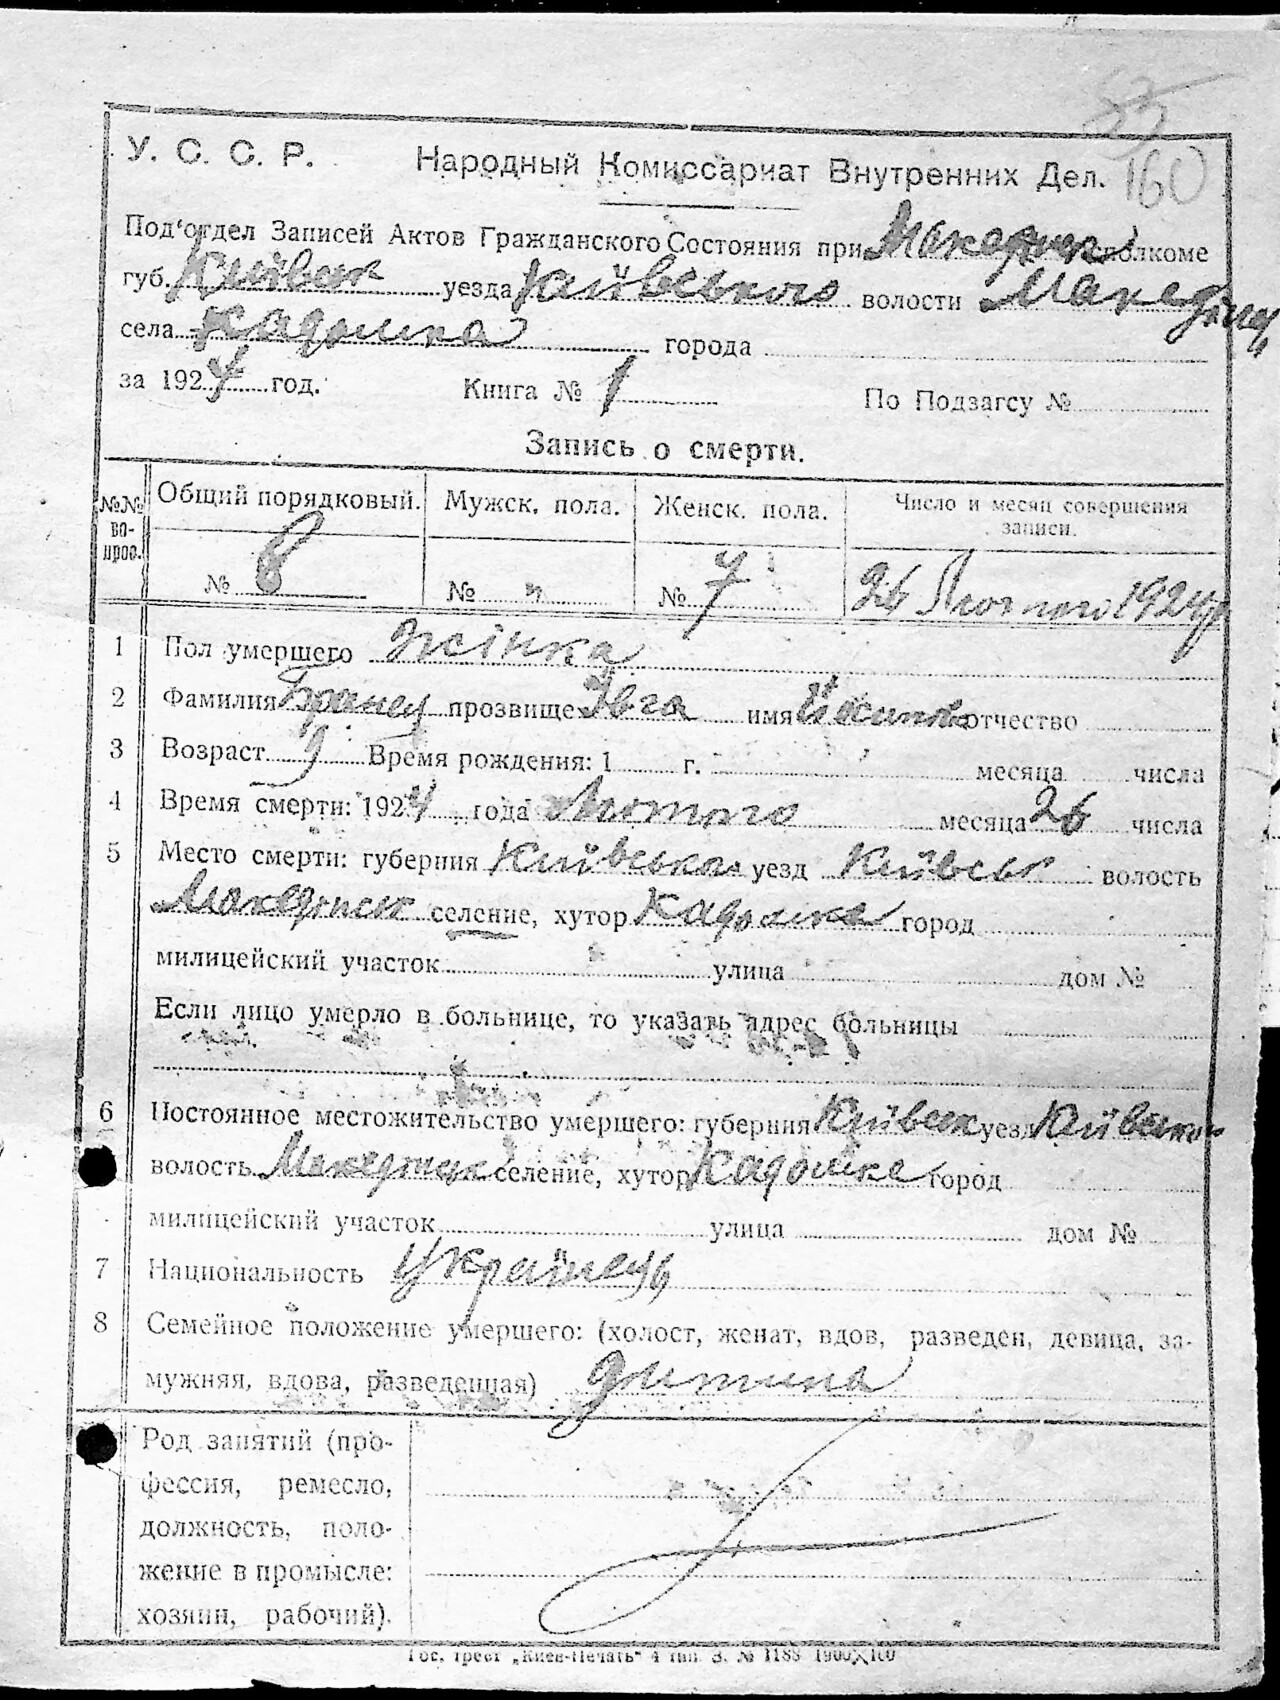 53
160
У. С. С. Р. Народный Комиссариат Внутренних Дел.
Под‘отдел Записей Актов Гражданского Состояния при исполкоме
губ. Київськ уезда Київського волости Македонськ
села Кадомка города
за 1924 год. Книга № 1 По Подзагсу №
Запись о смерти.
№№ вопрос. Общий порядковый. Мужск. пола. Женск. пола. Число и месяц совершения записи.
№ 8 № „ № 7 26 Лютого 1924 р
1 Пол умершего Жінка
2 Фамилия прозвище Ївга имя отчество
3 Возраст 9 Время рождения: 1 г. месяца числа
4 Время смерти: 1924 года Лютого месяца 26 числа
5 Место смерти: губерния Київська уезд Київськ волость
Македонськ селение, хутор Кадомка город
милицейский участок улица дом №
Если лицо умерло в больнице, то указать адрес больницы
6 Постоянное местожительство умершего: губерния Київськ уезд Київськ
волость Македонськ селение, хутор Кадомка город
милицейский участок улица дом №
7 Национальность Українець
8 Семейное положение умершего: (холост, женат, вдов, разведен, девица, за-
мужняя, вдова, разведенная) дитина
Род занятий (про-
фессия, ремесло,
должность, поло-
жение в промысле:
хозяин, рабочий).
Гос. трест „Киев-Печать“ 4 тип. З. № 1188 1900×100